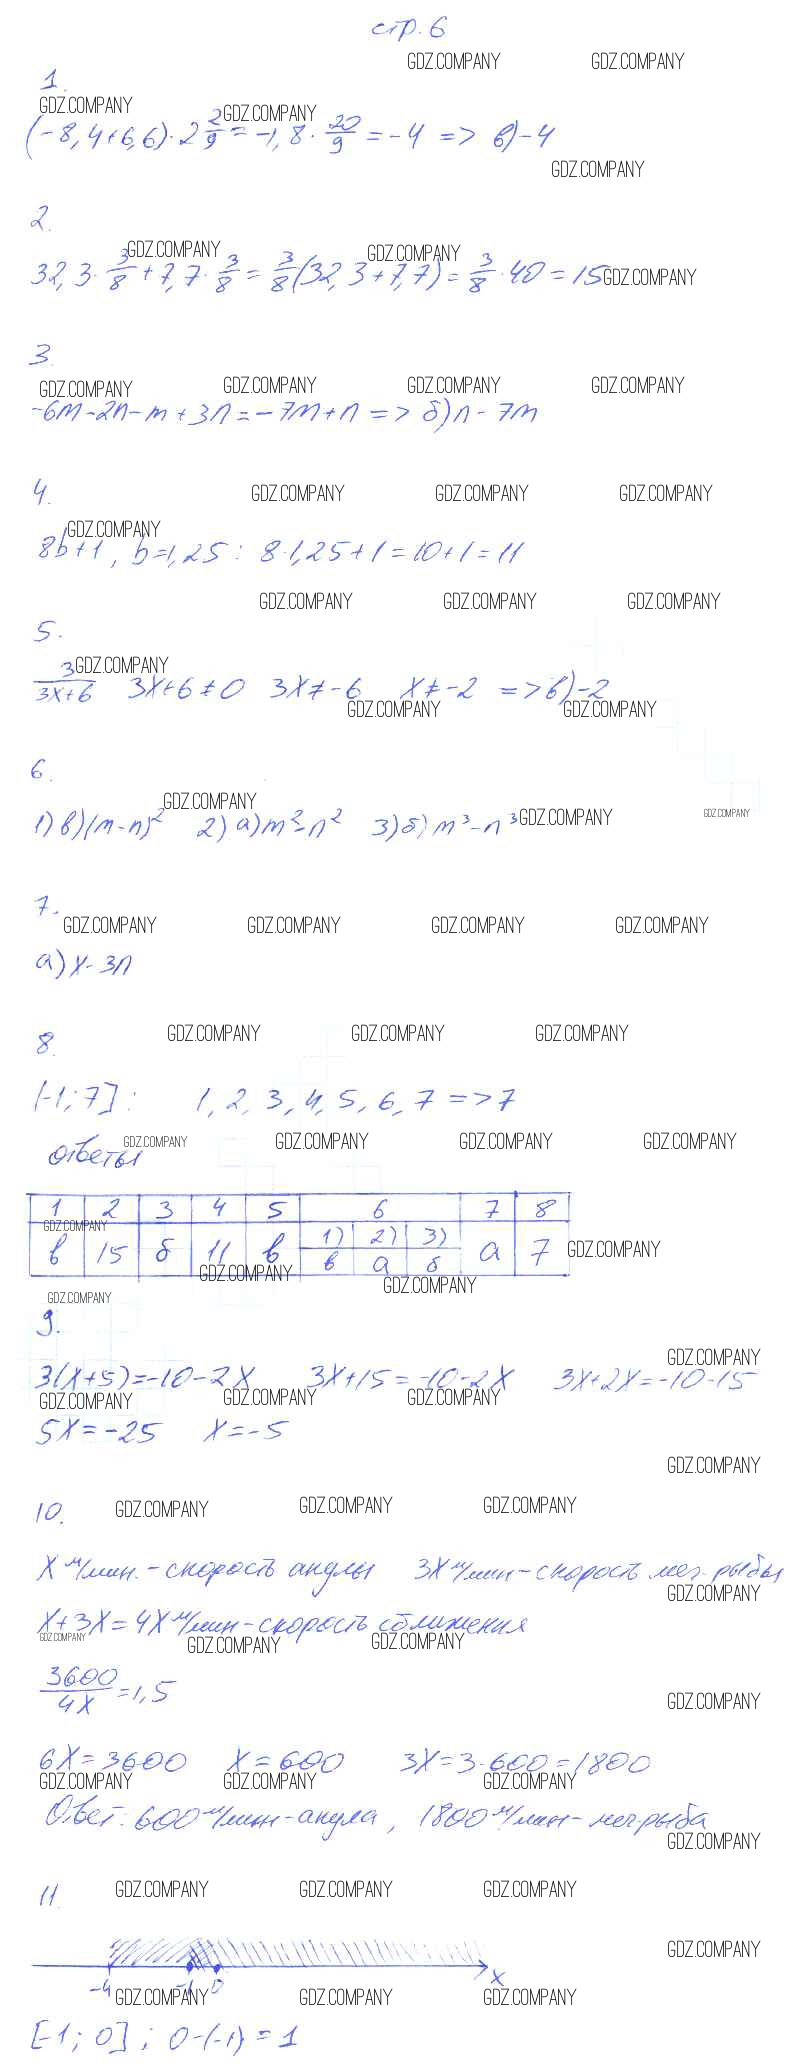 стр. 6
GDZ.COMPANY GDZ.COMPANY
1.
GDZ.COMPANY GDZ.COMPANY
(-8,4+6,6)·2 2/9 = -1,8 · 20/9 = -4 => в) -4
GDZ.COMPANY
2.
GDZ.COMPANY GDZ.COMPANY
32,3 · 3/8 + 7,7 · 3/8 = 3/8(32,3+7,7) = 3/8 · 40 = 15 GDZ.COMPANY
3.
GDZ.COMPANY GDZ.COMPANY GDZ.COMPANY GDZ.COMPANY
-6m-2n-m+3n=-7m+n => б) n-7m
4.
GDZ.COMPANY GDZ.COMPANY GDZ.COMPANY
GDZ.COMPANY
8b+1, b=1,25: 8·1,25+1=10+1=11
GDZ.COMPANY GDZ.COMPANY GDZ.COMPANY
5.
GDZ.COMPANY
3/(3x+6) 3x+6≠0 3x≠-6 x≠-2 => в) -2
GDZ.COMPANY GDZ.COMPANY
6.
GDZ.COMPANY
1) в) (m-n)² 2) а) m²-n² 3) б) m³-n³ GDZ.COMPANY GDZ.COMPANY
7.
GDZ.COMPANY GDZ.COMPANY GDZ.COMPANY GDZ.COMPANY
а) x-3n
8.
GDZ.COMPANY GDZ.COMPANY GDZ.COMPANY
[-1;7]: 1, 2, 3, 4, 5, 6, 7 => 7
ответы GDZ.COMPANY GDZ.COMPANY GDZ.COMPANY GDZ.COMPANY
1 2 3 4 5 6 7 8
GDZ.COMPANY
1) 2) 3)
в 15 б 11 в в а б а 7 GDZ.COMPANY
GDZ.COMPANY GDZ.COMPANY
GDZ.COMPANY
9.
GDZ.COMPANY
3(x+5)=-10-2x 3x+15=-10-2x 3x+2x=-10-15
GDZ.COMPANY GDZ.COMPANY GDZ.COMPANY
5x=-25 x=-5
GDZ.COMPANY
10. GDZ.COMPANY GDZ.COMPANY GDZ.COMPANY
x м/мин. - скорость акулы 3x м/мин - скорость меч.рыбы
GDZ.COMPANY
x+3x=4x м/мин - скорость сближения
GDZ.COMPANY GDZ.COMPANY GDZ.COMPANY
3600/4x = 1,5
GDZ.COMPANY
6x=3600 x=600 3x=3·600=1800
GDZ.COMPANY GDZ.COMPANY GDZ.COMPANY
Ответ: 600 м/мин - акула, 1800 м/мин - меч-рыба
GDZ.COMPANY
11. GDZ.COMPANY GDZ.COMPANY GDZ.COMPANY
GDZ.COMPANY
-4 -1 0 x
GDZ.COMPANY GDZ.COMPANY GDZ.COMPANY
[-1; 0]; 0-(-1) = 1